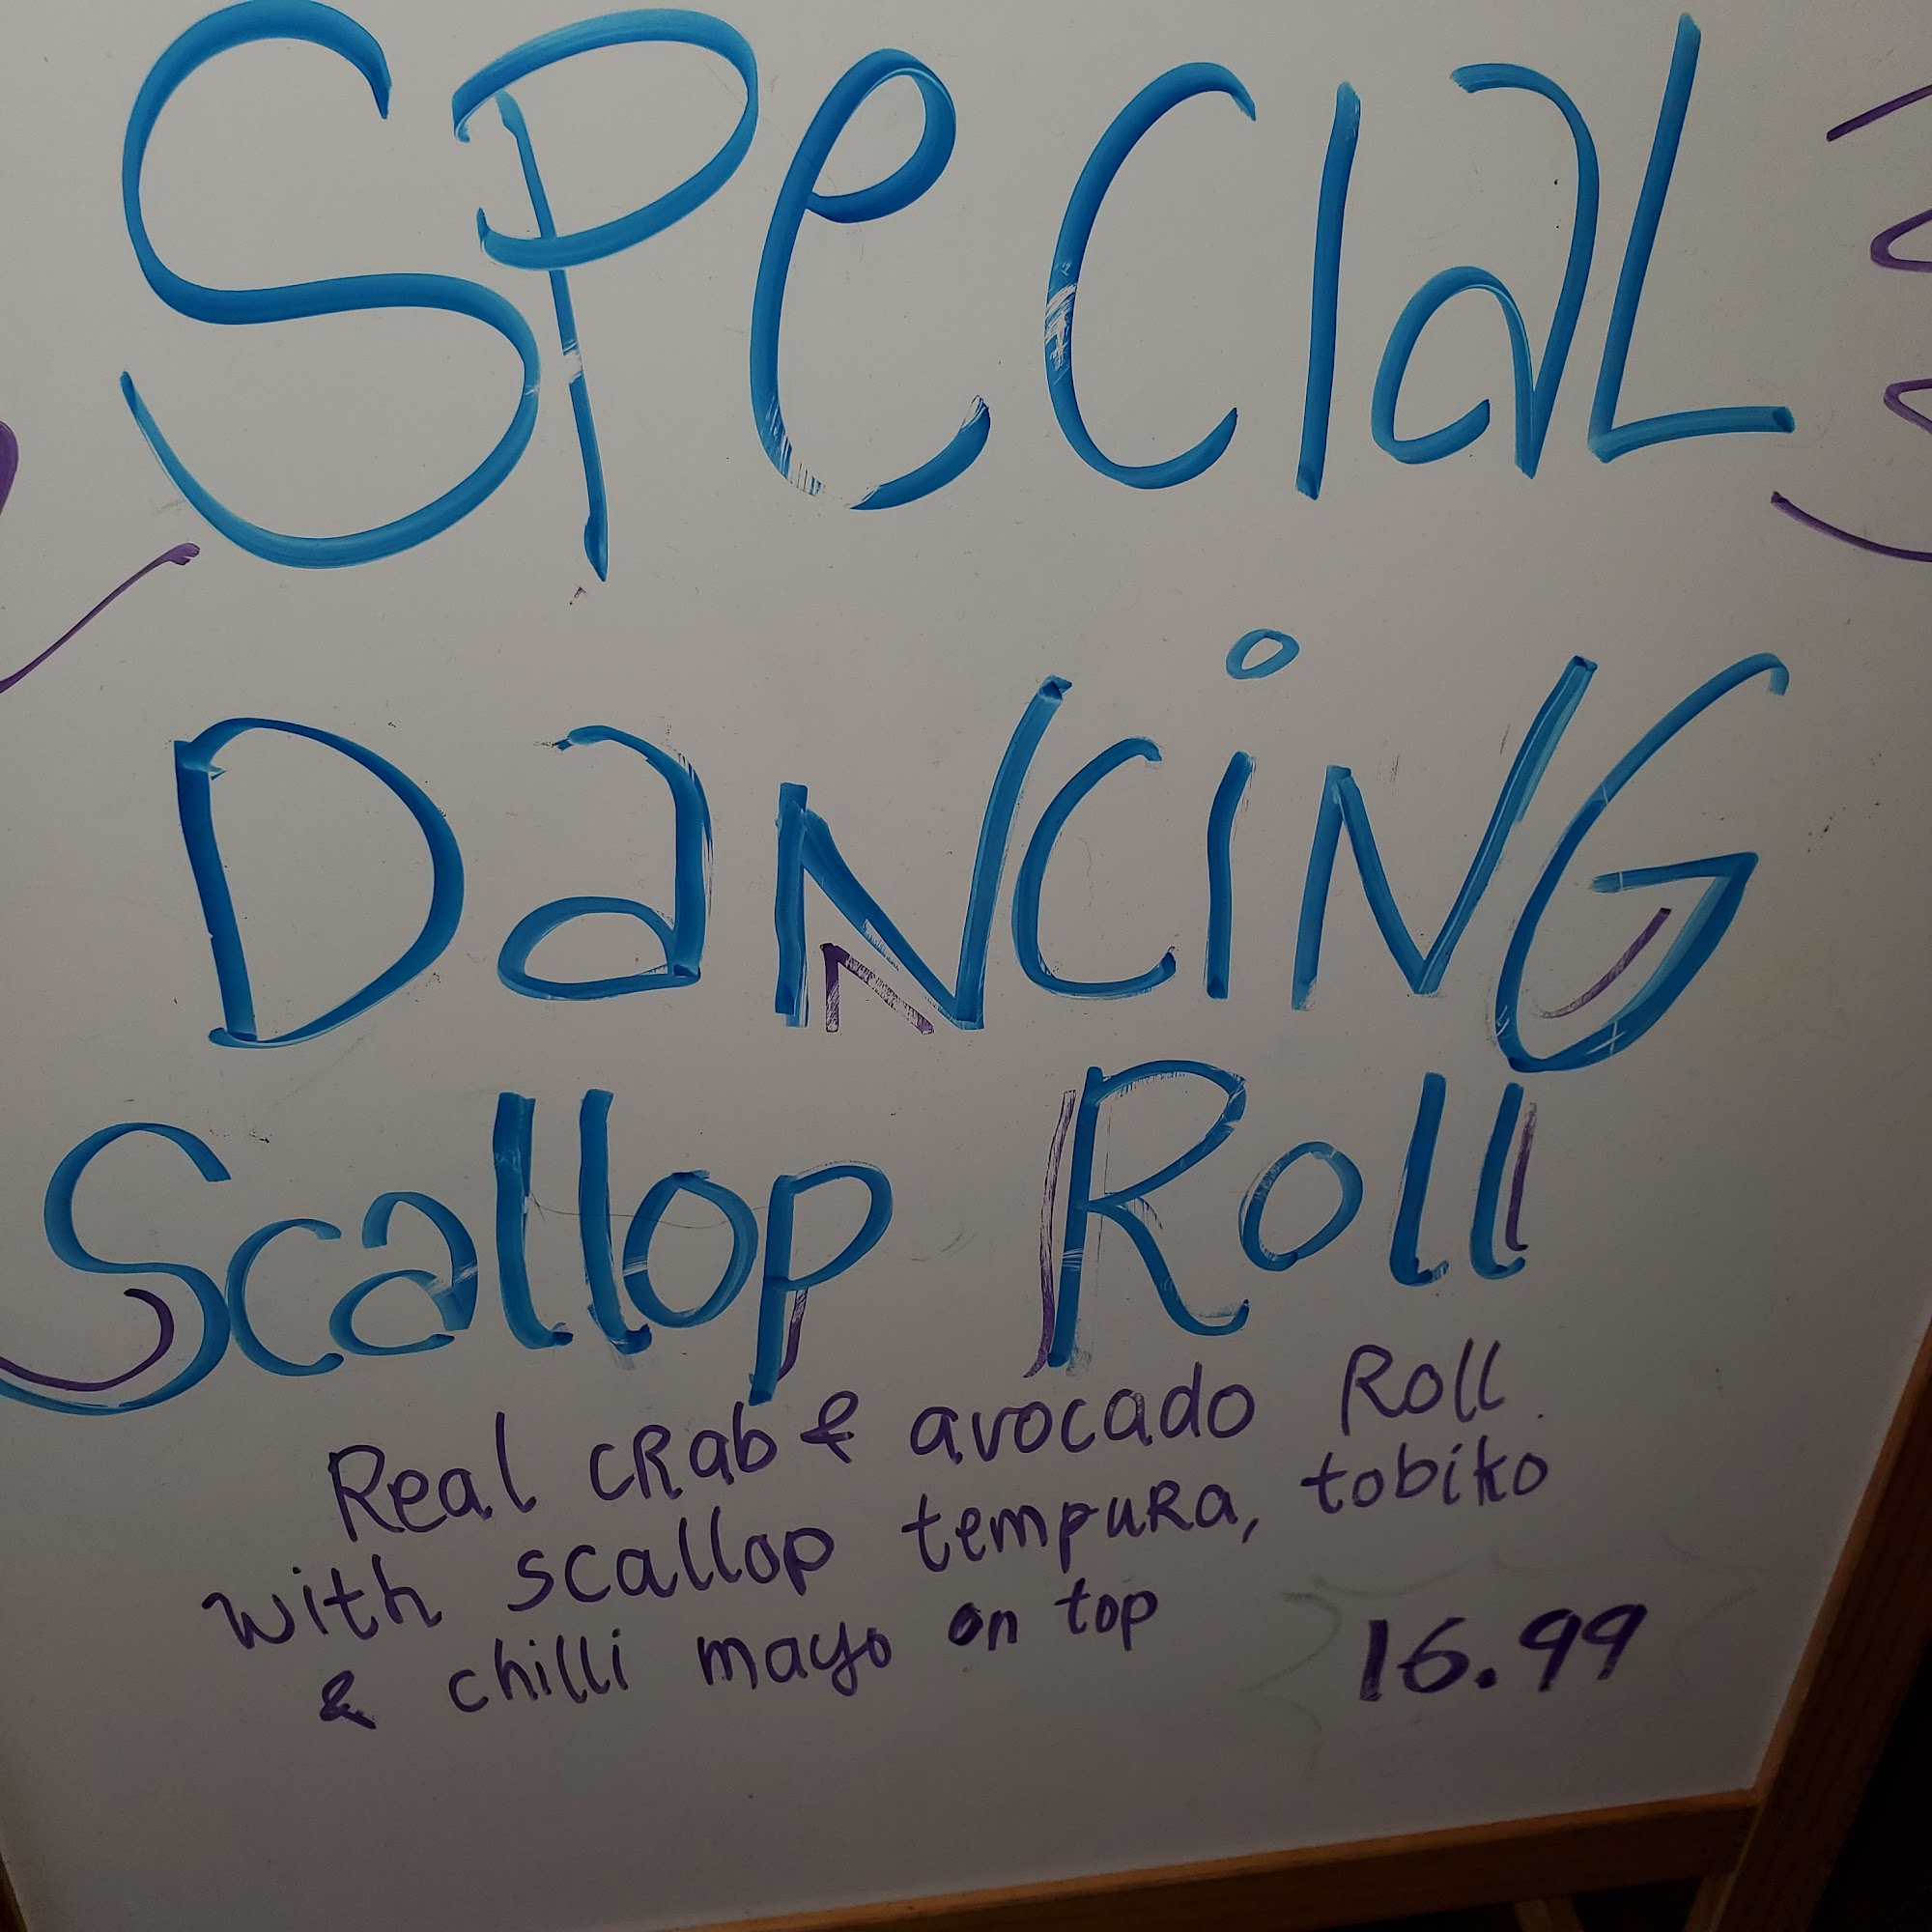 SPeCIaL
DaNCiNG
Scallop Roll
Real cRab & avocado Roll
with scallop tempuRa, tobiko
& chilli mayo on top
16.99